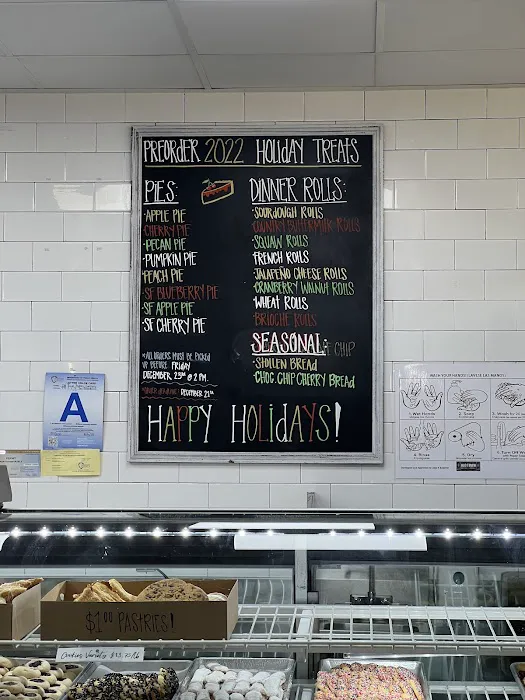 PREORDER 2022 HOLIDAY TREATS
PIES:
·APPLE PIE
·CHERRY PIE
·PECAN PIE
·PUMPKIN PIE
·PEACH PIE
·SF BLUEBERRY PIE
·SF APPLE PIE
·SF CHERRY PIE
*ALL ORDERS MUST BE PICKED
UP BEFORE FRIDAY
DECEMBER 23RD @ 2 PM.
DECEMBER 21ST
DINNER ROLLS:
·SOURDOUGH ROLLS
·COUNTRY BUTTERMILK ROLLS
·SQUAW ROLLS
·FRENCH ROLLS
·JALAPEÑO CHEESE ROLLS
·CRANBERRY WALNUT ROLLS
·WHEAT ROLLS
·BRIOCHE ROLLS
SEASONAL:
CHIP
·STOLLEN BREAD
·CHOC. CHIP CHERRY BREAD
HAPPY HOLIDAYS!
A
WASH YOUR HANDS
1. Wet Hands
2. Soap
4. Rinse
5. Dry
$1.00 PASTRIES!
Cookies